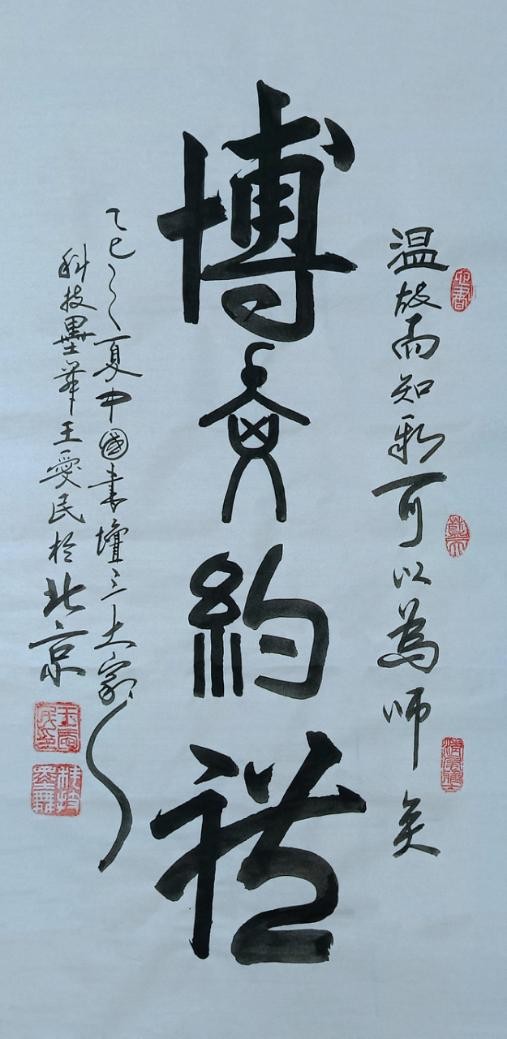 温故而知新可以為師矣
博文約礼
乙巳之夏中國書壇三大家
科技墨華王愛民於北京